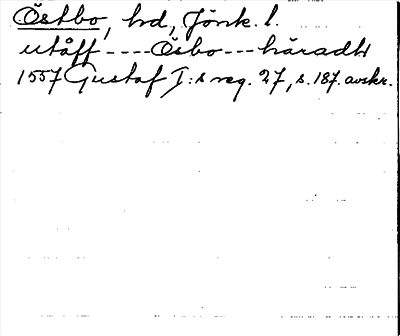 Östbo, hd, Jönk. l.
utåff ---- Ösbo --- häradh
1557 Gustaf I:s reg. 27, s. 187. avskr.